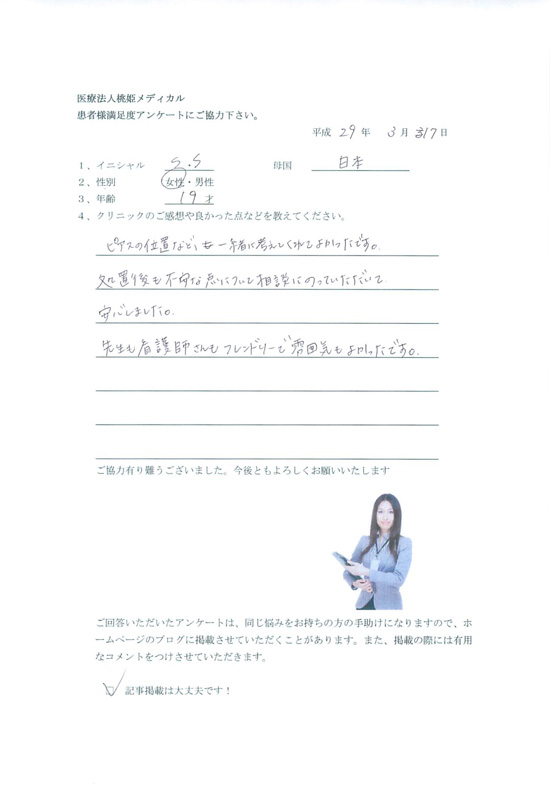 医療法人桃姫メディカル
患者様満足度アンケートにご協力下さい。
平成 29 年 3 月 17 日
1、イニシャル S.S 母国 日本
2、性別 女性・男性
3、年齢 19 才
4、クリニックのご感想や良かった点などを教えてください。
ピアスの位置なども一緒に考えてくれてよかったです。
処置後も不安な点について相談にのっていただいて
安心しました。
先生も看護師さんもフレンドリーで雰囲気もよかったです。
ご協力有り難うございました。今後ともよろしくお願いいたします
ご回答いただいたアンケートは、同じ悩みをお持ちの方の手助けになりますので、ホ
ームページのブログに掲載させていただくことがあります。また、掲載の際には有用
なコメントをつけさせていただきます。
記事掲載は大丈夫です！